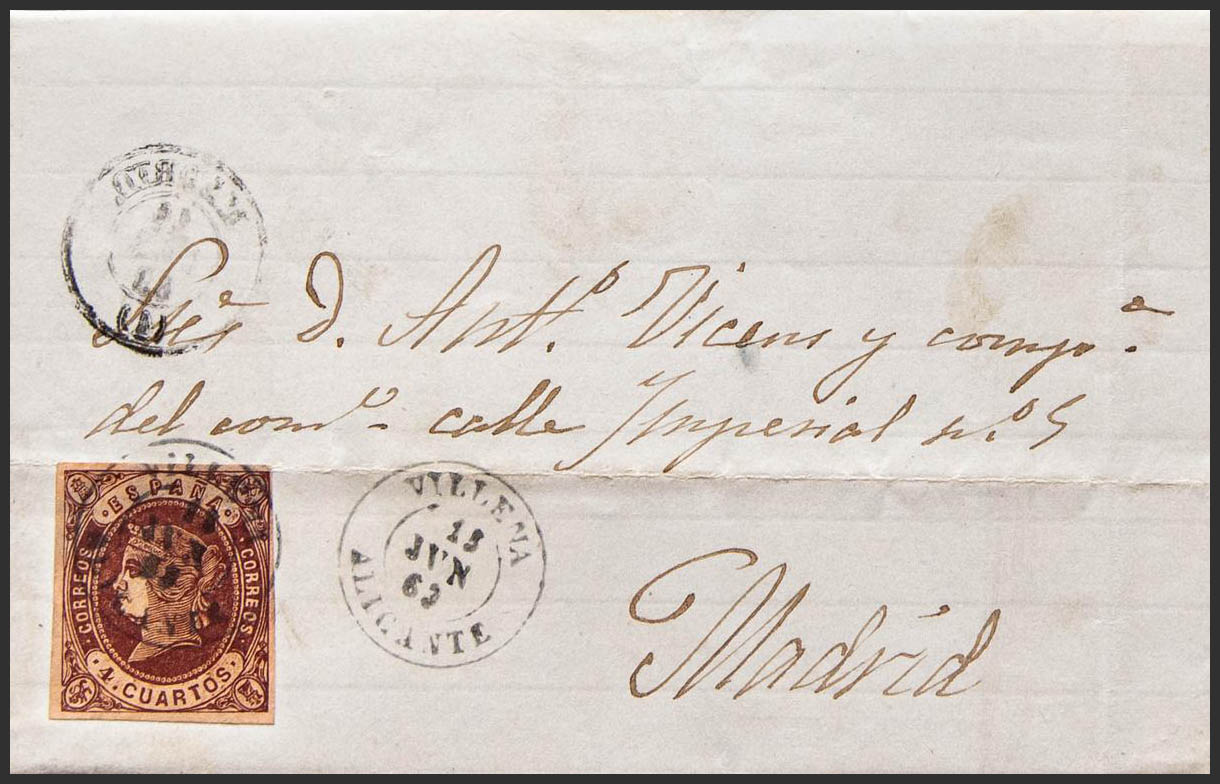 Sres D. Antº. Vicens y compª.
del comº. calle Imperial nº. 5
Madrid
VILLENA
13
JUN
63
ALICANTE
ESPAÑA
CORREOS
CORREOS
4. CUARTOS
VILLE
JUN
63